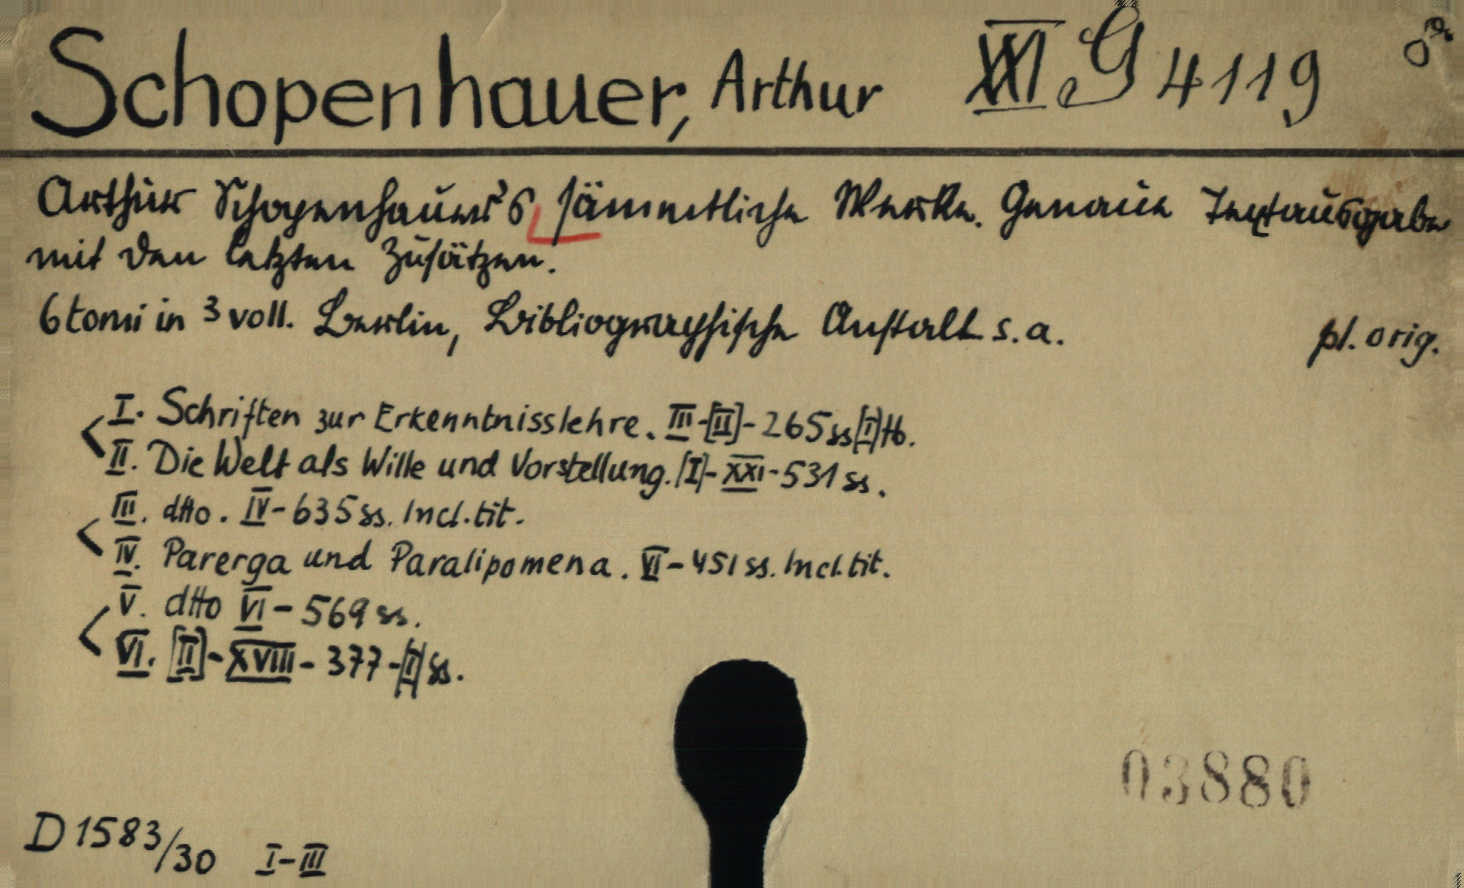 Schopenhauer, Arthur XXI G 4119 8°
Arthur Schopenhauer's sämmtliche Werke. Genaue Textausgabe
mit den letzten Zusätzen.
6 tomi in 3 voll. Berlin, Bibliographische Anstalt s. a. pl. orig.
I. Schriften zur Erkenntnisslehre. III-[II]-265 ss [I] tb.
II. Die Welt als Wille und Vorstellung. [I]-XXI-531 ss.
III. dtto. IV-635 ss. Incl. tit.
IV. Parerga und Paralipomena. VI-451 ss. Incl. tit.
V. dtto VI-569 ss.
VI. [II]-XVIII-377-[I] ss.
03880
D 1583/30 I-III